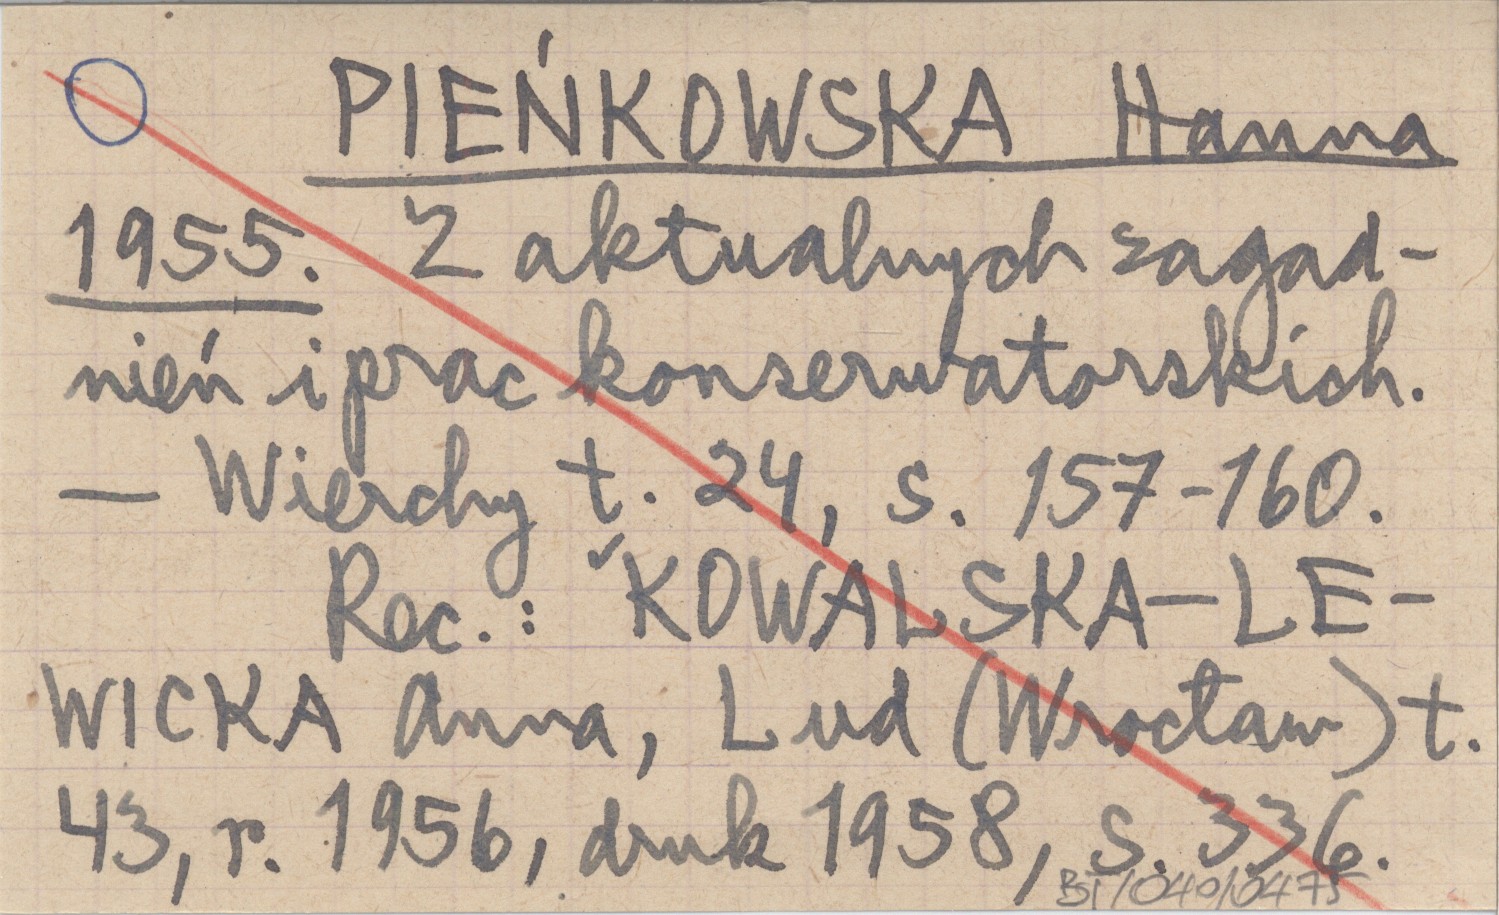 PIEŃKOWSKA Hanna
1955. Z aktualnych zagad-
nień i prac konserwatorskich.
— Wierchy t. 24, s. 157-160.
Rec.: KOWALSKA-LE-
WICKA Anna, Lud (Wrocław) t.
43, r. 1956, druk 1958, s. 336.
BT/040/0475